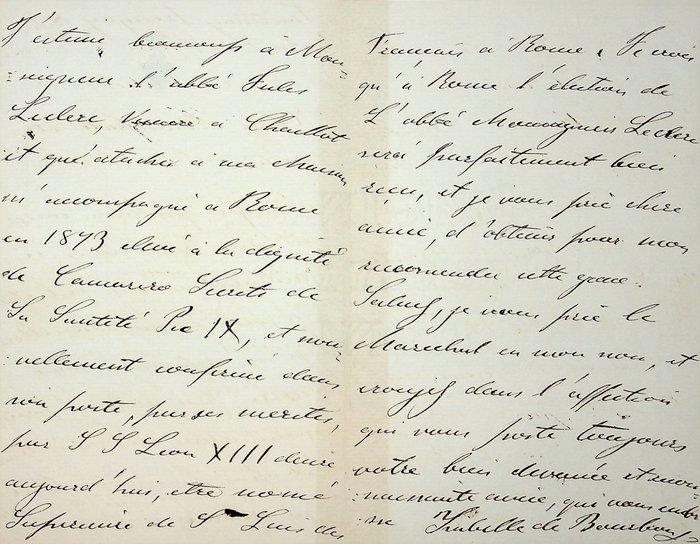 J'estime beaucoup à Mon-
seigneur l'abbé Jules
Leclerc, Vicaire a Chaillot
et qu'ataché a ma Maison
m'accompagné a Rome
en 1873 elevé à la dignité
de Camarero Secreto de
Sa Santeté Pie IX, et nou-
vellement confirmé dans
son poste, par ses merites,
par S S Leon XIII desire
aujourd'hui, etre nomé
Superieure de St Luis des
Francais a Rome. Je crois
qu'a Rome l'election de
L'abbé Leclerc
sera parfaitement bien
recu, et je vous prie chere
amie, d'obtenir pour mon
recomendé cette grace.
Saluez, je vous prie le
Marechal en mon non, et
croyez dans l'affection
qui vous porte toujours
votre bien devouée et recon-
naissante amie, qui vous embra-
sse Isabelle de Bourbon